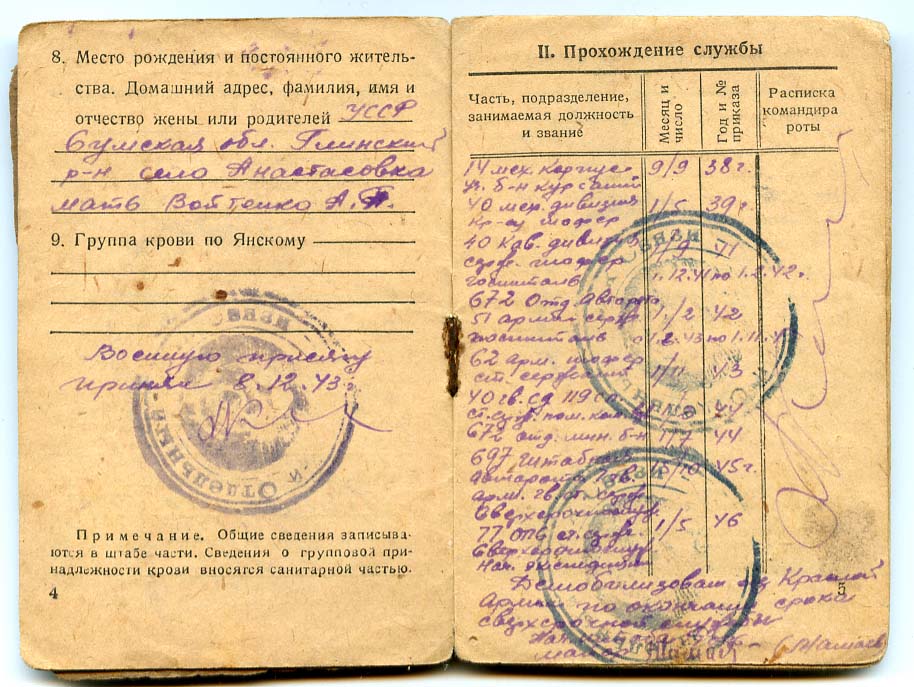 8. Место рождения и постоянного житель-
ства. Домашний адрес, фамилия, имя и
отчество жены или родителей УССР
Сумская обл. Глинский
р-н село Анастасовка
мать Войтенко А.
9. Группа крови по Янскому
Военную присягу
принял 8.12.43г.
связи
Отдельный
Примечание. Общие сведения записыва-
ются в штабе части. Сведения о групповой при-
надлежности крови вносятся санитарной частью.
4
II. Прохождение службы
Часть, подразделение,
занимаемая должность
и звание
Месяц и
число
Год и №
приказа
Расписка
командира
роты
14 мех. корпус 9/9 38г.
б-н курсант
40 мех. дивизия 1/5 39г.
кр-ец шофер
40 кав. дивизия
серж. шофер
госпиталь 1.12.41 по 1.2.42г.
672 Отд. Авторота
51 армии серж. 1/2 42
госпиталь
62 арм. шофер
ст. сержант 1/11 43
40 гв. сд 119 сп
ст. серж. пом. ком. 44
672 отд. мин. б-н 1/7 44
697 штабная
авторота 15/10 45г.
арм. гв. ст. серж.
Сверхсрочнослуж.
77 ОПС ст. серж. 1/5 46
Сверхсрочнослуж.
Нач. экспедиции
связи
Демобилизован из Красной
Армии по окончании срока
сверхсрочной службы
майор
5